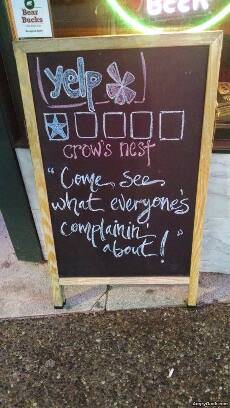 Bear
Bucks
BEER
yelp
crow's nest
"Come see
what everyone's
complainin'
about!"
AngryDuck.com